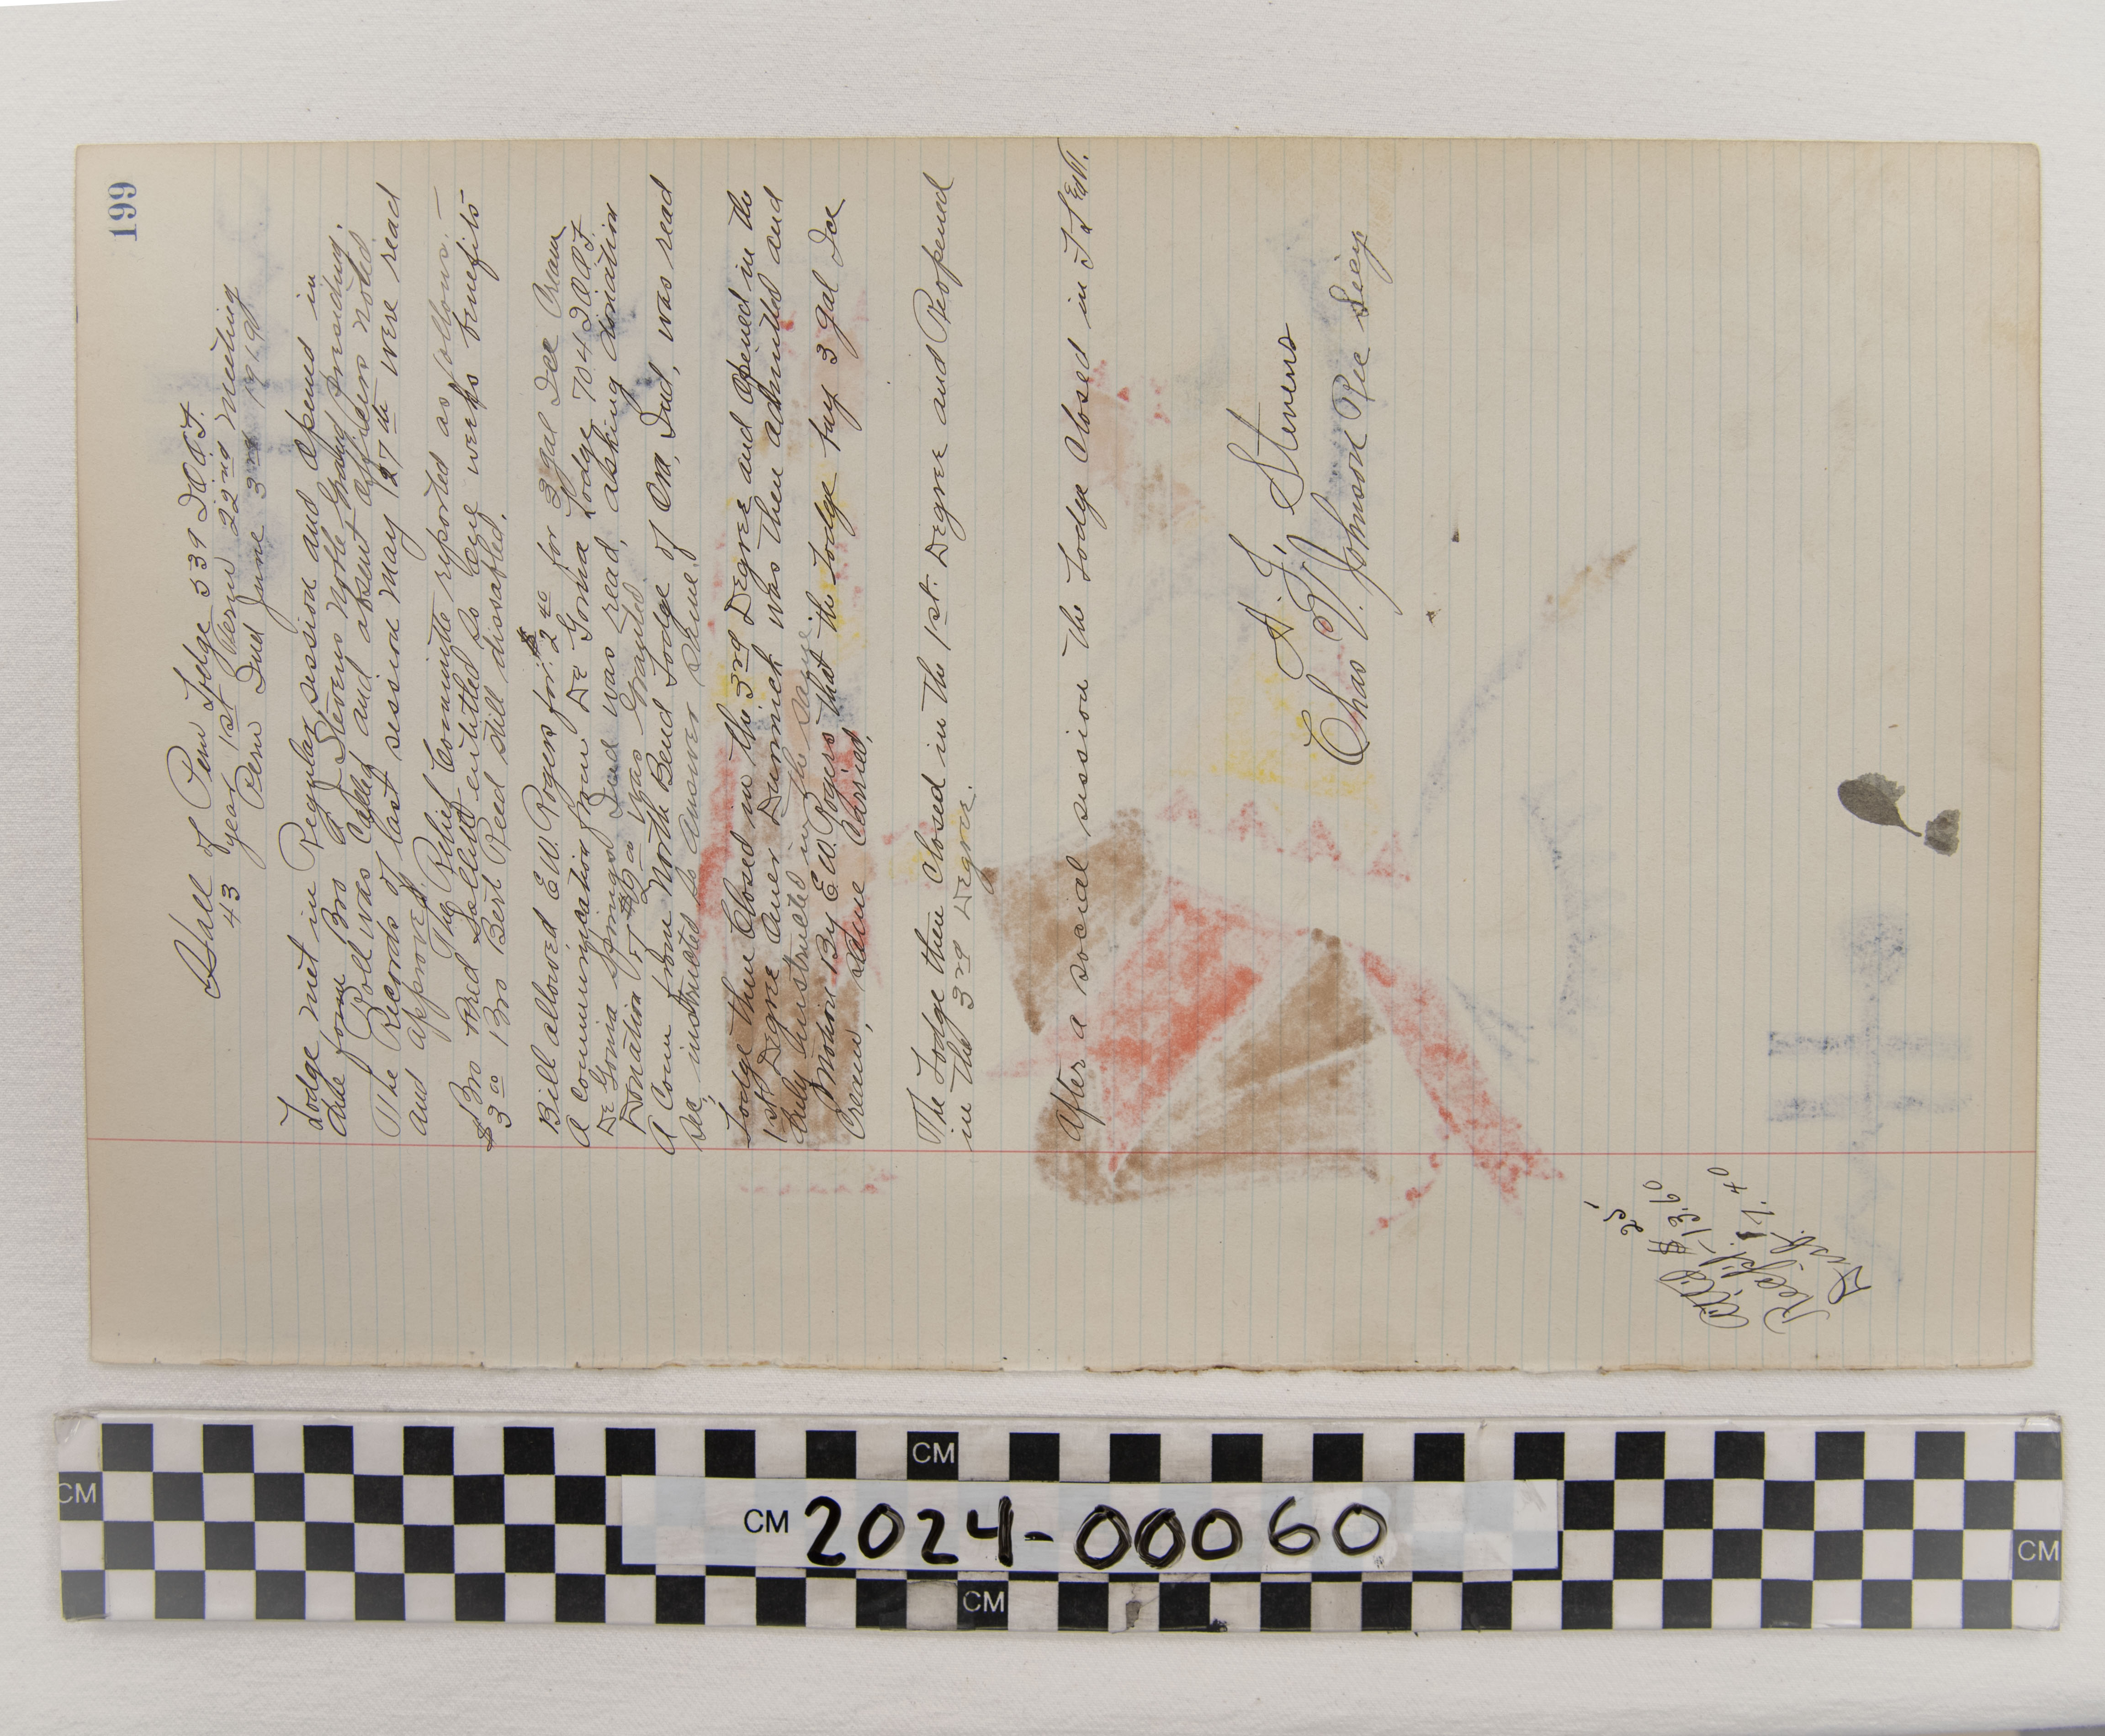 199
Hall of Peru Lodge 539 I.O.O.F.
43 year 1st Term 22nd Meeting
Peru Ind June 3rd 1919
Lodge met in Regular session and opened in
due form Bro Stevens Noble Grand presiding.
Roll was Called and absent officers noted
The Records of last session May 27th were read
and approved. The Relief Committe reported as follows.—
Bro Fred entitled to one weeks benefits
$3.00 Bro Bert Reed still dissabled.
Bill allowed E.W. Rogers for $2.40 for 3 gal Ice Cream
A Communication from De Gonia Lodge 704 I.O.O.F.
De Gonia Springs Ind was read, asking donation
Donation of $2.00 was Granted.
A Com from North Bend Lodge of Ora, Ind, was read
Sec, instructed to answer same.
Lodge then Closed in the 3rd Degree and opened in the
1st Degree was then admitted and
duly instructed in the same.
Motion By E.W. Rogers that the Lodge buy 3 gal Ice
Cream, same Carried,
The Lodge then Closed in the 1st. Degree and Reopened
in the 3rd Degree.
After a social session the Lodge Closed in
A. J. Stevens
Chas V. Johnson Rec Secy
25
$
Recpt. 13.60
Disb. 17.40
CM
CM
CM 2024-00060
CM
CM